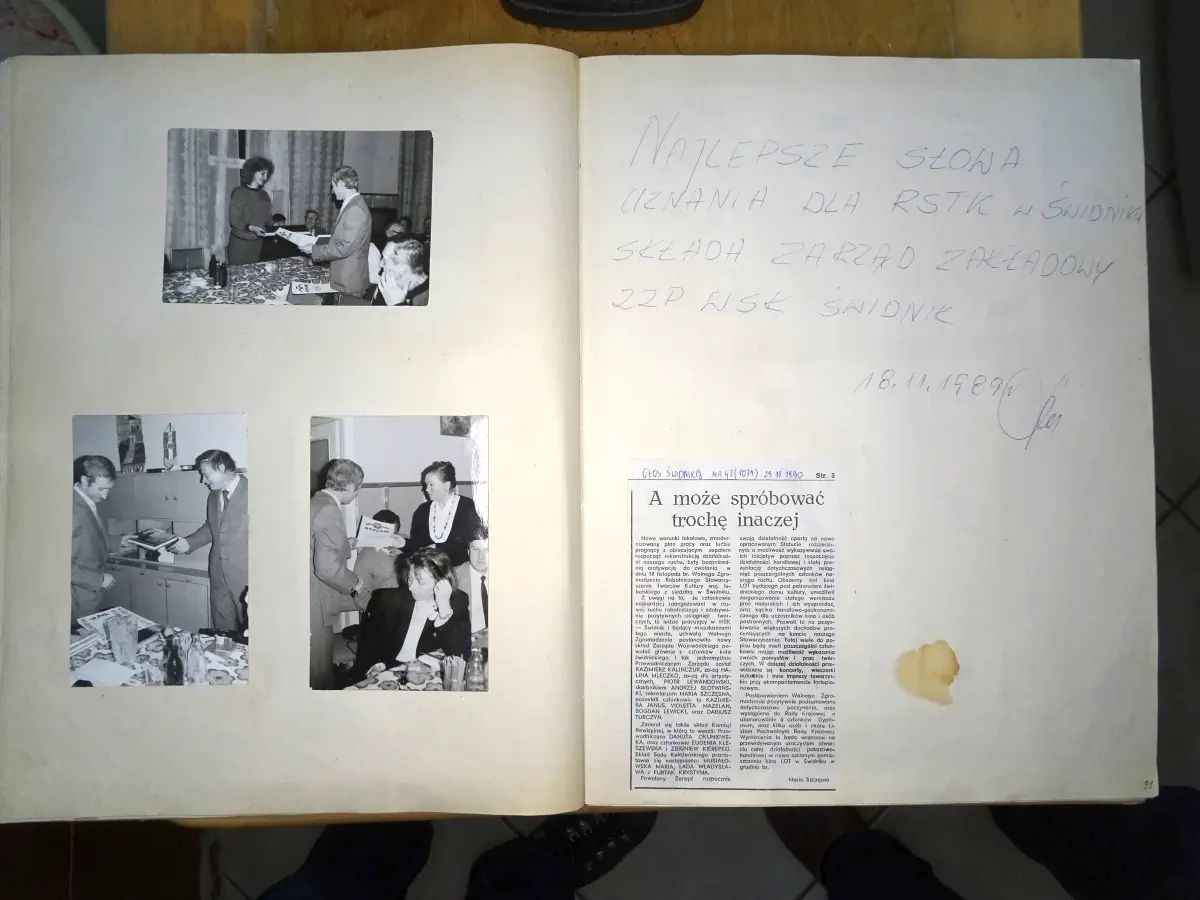 NAJLEPSZE SŁOWA
UZNANIA DLA RSTK W ŚWIDNIKU
SKŁADA ZARZĄD ZAKŁADOWY
ZZP WSK ŚWIDNIK
18.11.1989
GŁOS ŚWIDNIKA NR 47 (1071) 29 11 1990 Str. 3
A może spróbować
trochę inaczej
Nowe warunki lokalowe, zmoder-
nizowany plan pracy oraz ludzie
pragnący z obiecującym zapałem
rozpocząć rekonstrukcję działalnoś-
ci naszego ruchu, były bezpośred-
nią motywacją do zwołania w
dniu 18 listopada br. Walnego Zgro-
madzenia Robotniczego Stowarzy-
szenia Twórców Kultury woj. lu-
belskiego z siedzibą w Świdniku.
Z uwagi na to, że członkowie
najbardziej zaangażowani w roz-
wój ruchu robotniczego i zdobywa-
nie pozytywnych osiągnięć twór-
czych, to ludzie pracujący w WSK
— Świdnik i będący mieszkańcami
tego miasta, uchwałą Walnego
Zgromadzenia postanowiono nowy
skład Zarządu Wojewódzkiego po-
wołać głównie z członków koła
świdnickiego. I tak jednomyślnie
Przewodniczącym Zarządu został
KAZIMIERZ KALINCZUK, z-cą HA-
LINA MLECZKO, z-cą d/s artysty-
cznych, PIOTR LEWANDOWSKI,
skarbnikiem ANDRZEJ SŁOTWIŃS-
KI, sekretarzem MARIA SZCZĘSNA,
pozostali członkowie to KAZIMIE-
RA JANUS, VIOLETTA MAZELAN,
BOGDAN LEWICKI, oraz DARIUSZ
TURCZYN.
Zmienił się także skład Komisji
Rewizyjnej, w którą to weszli: Prze-
wodnicząca DANUTA OKUNIEWS-
KA, oraz członkowie EUGENIA KLE-
SZEWSKA i ZBIGNIEW KIEREPKO.
Skład Sądu Koleżeńskiego przeds-
tawia się następująco: MUSIAŁO-
WSKA MARIA, ŁADA WŁADYSŁA-
WA i FURTAK KRYSTYNA.
Powołany Zarząd rozpocznie
swoją działalność opartą na nowo
opracowanym Statucie rozszerzo-
nym o możliwość wykazywania swo-
ich inicjatyw poprzez rozpoczęcie
działalności handlowej i stałą pre-
zentację dotychczasowych osiąg-
nięć poszczególnych członków na-
szego ruchu. Obszerny hol kina
LOT będącego pod patronatem świ-
dnickiego domu kultury, umożliwił
zorganizowanie stałego wernisażu
prac malarskich i ich wysprzedaż,
oraz kącika handlowo-gastronomicz-
nego dla uczestników kina i osób
postronnych. Pozwoli to na pozy-
skiwanie większych dochodów pro-
centujących na koncie naszego
Stowarzyszenia. Tutaj wiele do po-
pisu będą mieli poszczególni człon-
kowie mając możliwość wykazania
swoich pomysłów i prac twór-
czych. W dalszej działalności prze-
widziane są koncerty, wieczorki
autorskie i inne imprezy towarzys-
kie przy akompaniamencie fortepia-
nowym.
Postanowieniem Walnego Zgro-
madzenia pozytywnie podsumowano
dotychczasowe poczynania, oraz
wystąpiono do Rady Krajowej o
uhonorowanie 6 członków Dyplo-
mem, oraz kilku osób i chóru Li-
stem Pochwalnym Rady Krajowej.
Wyróżnienia te będą wręczone na
przewidywanym uroczystym otwar-
ciu całej działalności pokazowo-
handlowej w nowo oddanym pomie-
szczeniu kina LOT w Świdniku w
grudniu br.
Maria Szczęsna
91